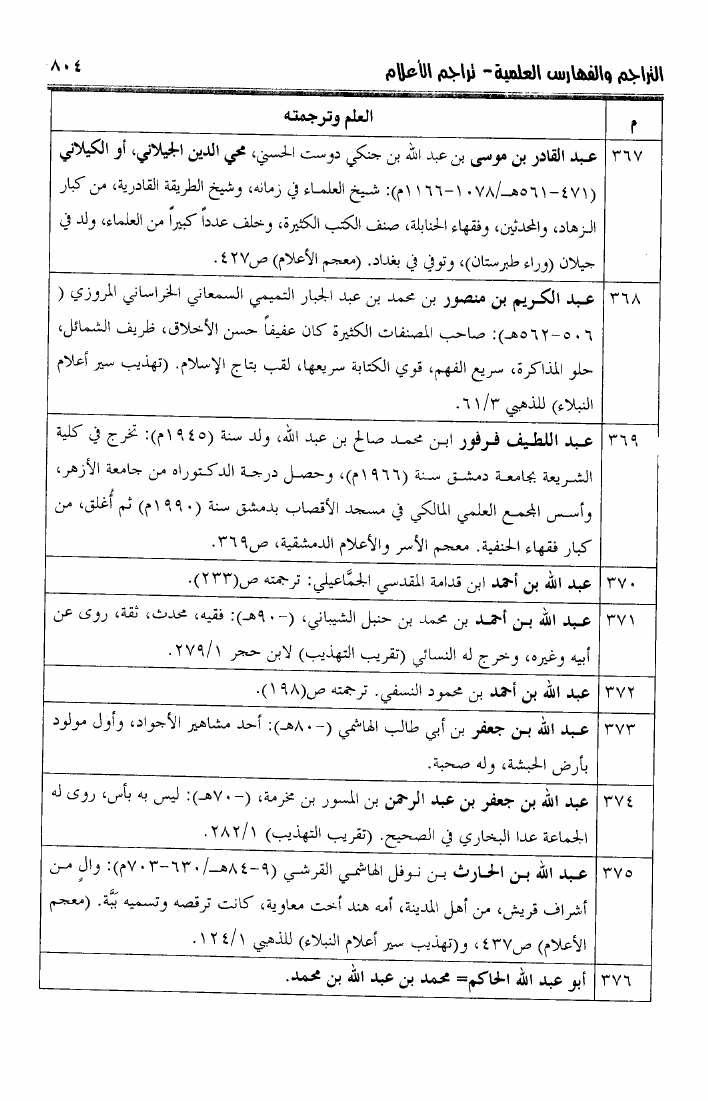 التراجم والفهارس العلمية- تراجم الأعلام ٨٠٤
م العلم وترجمته
٣٦٧ عبد القادر بن موسى بن عبد الله بن جنكي دوست الحسني، محي الدين الجيلاني، أو الكيلاني
(٤٧١-٥٦١هـ/١٠٧٨-١١٦٦م): شيخ العلماء في زمانه، وشيخ الطريقة القادرية، من كبار
الزهاد، والمحدثين، وفقهاء الحنابلة، صنف الكتب الكثيرة، وخلف عدداً كبيراً من العلماء، ولد في
جيلان (وراء طبرستان)، وتوفي في بغداد. (معجم الأعلام) ص٤٢٧.
٣٦٨ عبد الكريم بن منصور بن محمد بن عبد الجبار التميمي السمعاني الخراساني المروزي (
٥٠٦-٥٦٢هـ): صاحب المصنفات الكثيرة كان عفيفاً حسن الأخلاق، ظريف الشمائل،
حلو المذاكرة، سريع الفهم، قوي الكتابة سريعها، لقب بتاج الإسلام. (تهذيب سير أعلام
النبلاء) للذهبي ٦١/٣.
٣٦٩ عبد اللطيف فرفور ابن محمد صالح بن عبد الله، ولد سنة (١٩٤٥م): تخرج في كلية
الشريعة بجامعة دمشق سنة (١٩٦٦م)، وحصل درجة الدكتوراه من جامعة الأزهر،
وأسس المجمع العلمي المالكي في مسجد الأقصاب بدمشق سنة (١٩٩٠م) ثم أُغلق، من
كبار فقهاء الحنفية. معجم الأسر والأعلام الدمشقية، ص٣٦٩.
٣٧٠ عبد الله بن أحمد ابن قدامة المقدسي الجمَّاعيلي: ترجمته ص(٢٣٣).
٣٧١ عبد الله بن أحمد بن محمد بن حنبل الشيباني، (-٩٠هـ): فقيه، محدث، ثقة، روى عن
أبيه وغيره، وخرج له النسائي (تقريب التهذيب) لابن حجر ٢٧٩/١.
٣٧٢ عبد الله بن أحمد بن محمود النسفي. ترجمته ص(١٩٨).
٣٧٣ عبد الله بن جعفر بن أبي طالب الهاشمي (-٨٠هـ): أحد مشاهير الأجواد، وأول مولود
بأرض الحبشة، وله صحبة.
٣٧٤ عبد الله بن جعفر بن عبد الرحمن بن المسور بن مخرمة، (-٧٠هـ): ليس به بأس، روى له
الجماعة عدا البخاري في الصحيح. (تقريب التهذيب) ٢٨٢/١.
٣٧٥ عبد الله بن الحارث بن نوفل الهاشمي القرشي (٩-٨٤هـ/٦٣٠-٧٠٣م): والٍ من
أشراف قريش، من أهل المدينة، أمه هند أخت معاوية، كانت ترقصه وتسميه بَبَّة. (معجم
الأعلام) ص٤٣٧، و(تهذيب سير أعلام النبلاء) للذهبي ١٢٤/١.
٣٧٦ أبو عبد الله الحاكم= محمد بن عبد الله بن محمد.